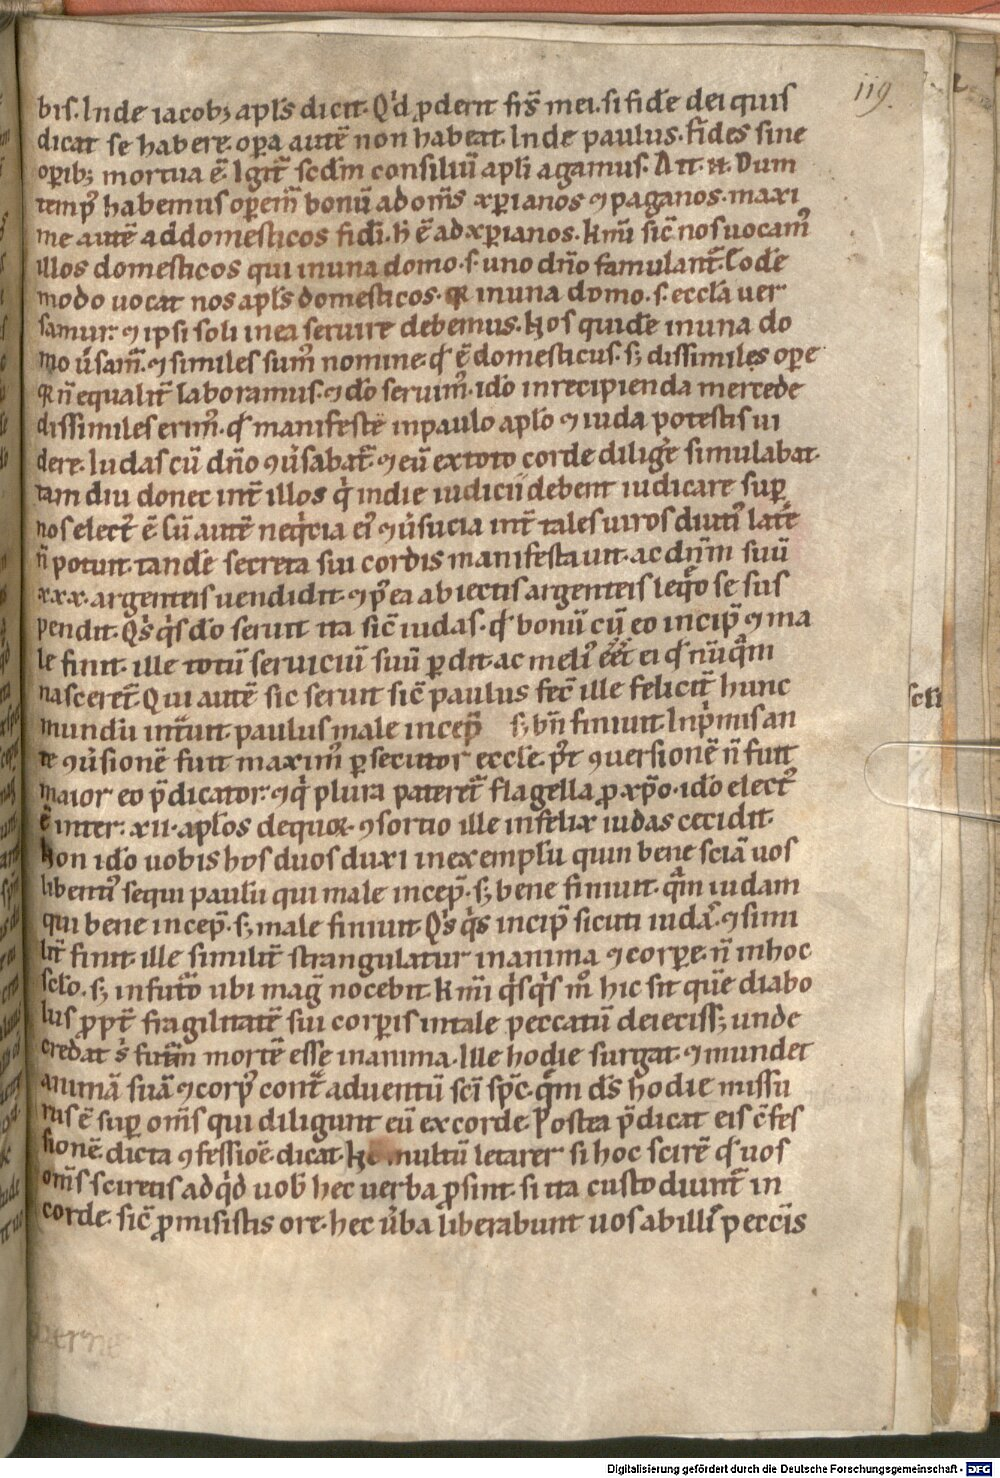 119.
bis. Inde iacobꝫ apl̅s dicit. Qd̛ ꝓderit frs̅ mei. si fidē dei quis
dicat se habere. oꝑa autē non habeat. Inde paulus. fides sine
oꝑibꝫ mortua ē. Igit̅ scdm̅ consiliū apl̅i agamus. Ait .n. Dum
temp᷒ habemus oꝑem᷒ bonū ad om̅s xp̅ianos ⁊ paganos. maxi
me autē ad domesticos fidei. h̅ ē ad xp̅ianos. Nm̅ sic̅ nos uocam᷒
illos domesticos qui in una domo .s. uno dn̅o famulant̅. Eodē
modo uocat nos apl̅s domesticos. qꝛ in una domo .s. eccl̅a uer
samur. ⁊ ipsi soli in ea seruire debemus. Nos quidē in una do
mo ūsam᷒. ⁊ similes sum᷒ nomine. qd̛ ē domesticus. sꝫ dissimiles oꝑe
qꝛ n̅ equalit̅ laboramus. ⁊ do̅ seruim᷒. ido̅ in recipienda mercede
dissimiles erim᷒. qd̛ manifeste in paulo apl̅o ⁊ iuda potestis ui
dere. Iudas cū dn̅o ꝯūsabat̅. ⁊ eū ex toto corde diligē simulabat.
tam diu donec int̅ illos qͥ in die iudicii debent iudicare suꝑ
nos elect᷒ ē. Cū autē neqͥcia ei᷒ ⁊ ūsucia int̅ tales uiros diuti᷒ latē
n̅ potuit. tandē secreta sui cordis manifestauit. ac dn̅m suū
xxx. argenteis uendidit. ⁊ p᷒ ea abiectis argenteis leqͦo se sus
pendit. Qͥs qͥs do̅ seruit ita sic̅ iudas. qd̛ bonū cū eo incip̅ ⁊ ma
le finit. ille totū seruiciū suū ꝑdit. ac meli᷒ eēt ei qd̛ nūqᷓm
nasceret̅. Qui autē sic seruit sic̅ paulus fec̅ ille felicit̅ hunc
mundū int̅uit. paulus male incep̅ sꝫ bn̅ finiuit. Inpͥmis an
te ꝯūsionē fuit maxim᷒ ꝑsecutor eccle. p᷒t ꝯuersionē n̅ fuit
maior eo p̅dicator. ⁊ qͥ plura pateret̅ flagella ꝓ xp̅o. ido̅ elect᷒
ē inter .xii. apl̅os. de quoꝝ ꝯsortio ille infelix iudas cecidit.
Non ido̅ uobis hos duos duxi in exemplū quin bene sciā uos
libenti᷒ sequi paulū qui male incep̅. sꝫ bene finiuit. qᷓm iudam
qui bene incep̅. sꝫ male finiuit. Qͥs qͥs incip̅ sicuti iudas. ⁊ simi
lit̅ finit. ille similit̅ strangulatur in anima ⁊ corꝑe. n̅ in hoc
sclo̅. sꝫ in futᵒo ubi magͥ nocebit. Nm̅ qͥsqͥs m̊ hic sit quē diabo
lus ꝓpt̅ fragilitatē sui corꝑis in tale peccatū deiecissꝫ unde
credat s̛ futᵃm mortē esse in anima. Ille hodie surgat. ⁊ mundet
animā suā ⁊ corp᷒ contᵃ aduentū sci̅ spc̅. qᷓm ds̅ hodie missu
rus ē suꝑ om̅s qui diligunt eū ex corde. Postea p̅dicat eis c̅fes
sionē. dicta ꝯfessioē. dicat. multū letarer si hoc scirē qd̛ uos
om̅s sciretis ad qͥd uob̅ hec uerba ꝓsint. si ita custodiunt̅ in
corde. sic̅ ꝓmisistis ore. hec ūba liberabunt uos ab illis pecc̅is
scli
Digitalisierung gefördert durch die Deutsche Forschungsgemeinschaft - DFG